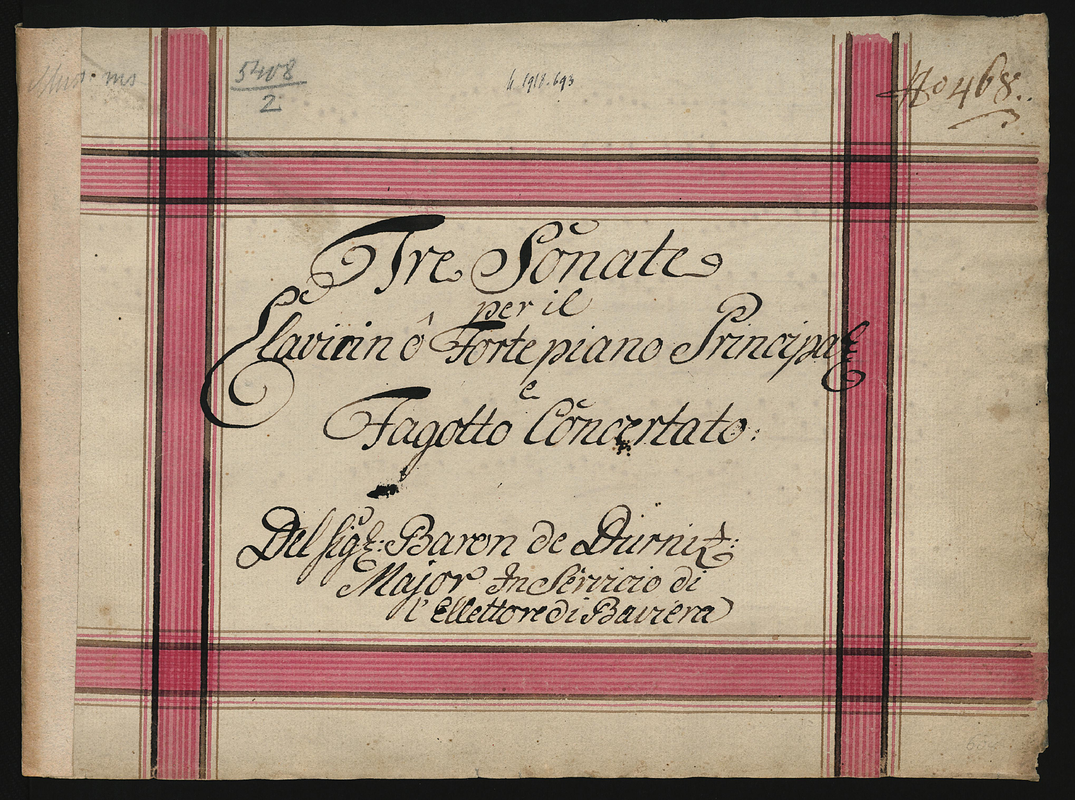 Mus. ms
5408
2
4 1911.693
No 468.
Tre Sonate
per il
Clavicin ô Fortepiano Principale
e
Fagotto Concertato:
Del Sigr: Baron de Dürniz:
Major In Servicio di
l'Ellettore di Baviera